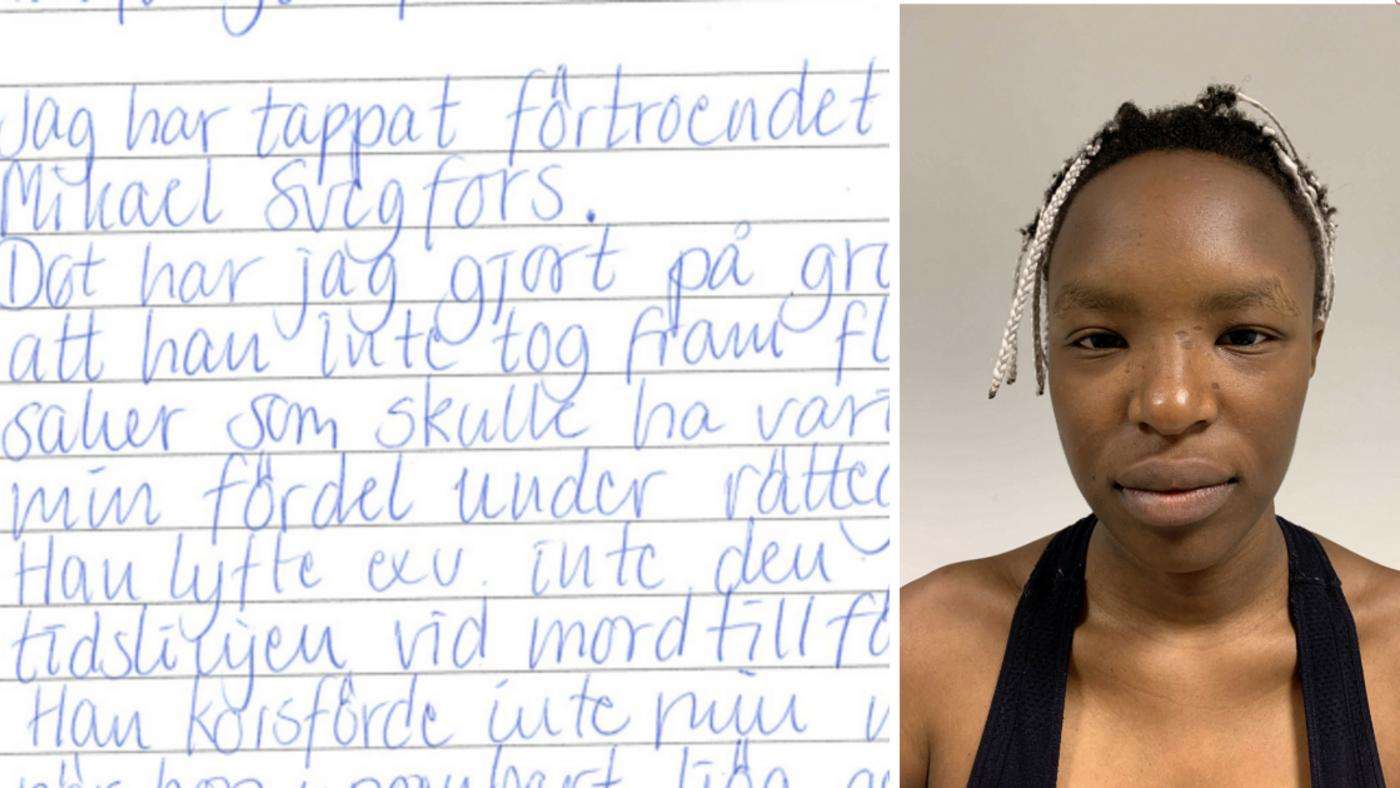 Jag har tappat förtroendet
Mikael Svegfors.
Det har jag gjort på gru
att han inte tog fram fl
saker som skulle ha vari
min fördel under rätte
Han lyfte exv. inte den
tidslinjen vid mordtillfä
Han korsförde inte min v